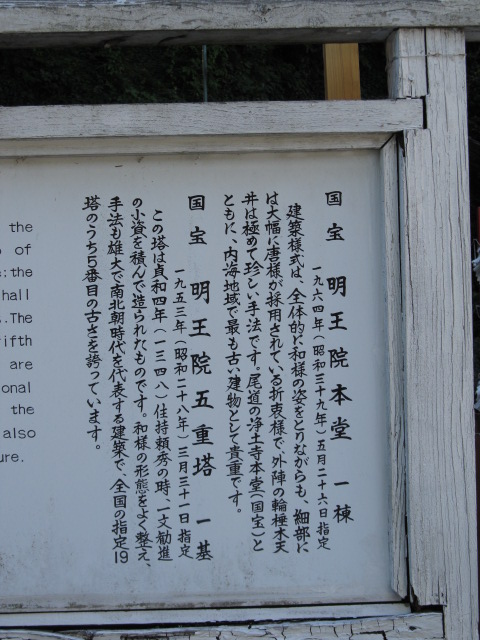 国宝 明王院本堂 一棟
一九六四年(昭和三十九年)五月二十六日指定
建築様式は、全体的に和様の姿をとりながらも、細部に
は大幅に唐様が採用されている折衷様で、外陣の輪棰木天
井は極めて珍しい手法です。尾道の浄土寺本堂(国宝)と
ともに、内海地域で最も古い建物として貴重です。
国宝 明王院五重塔 一基
一九五三年(昭和二十八年)三月三十一日指定
この塔は貞和四年(一三四八)住持頼秀の時、一文勧進
の小資を積んで造られたものです。和様の形態をよく整え、
手法も雄大で南北朝時代を代表する建築で、全国の指定19
塔のうち5番目の古さを誇っています。
the
of
:the
hall
.The
ifth
are
onal
the
also
ure.